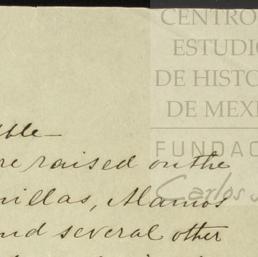 CENTRO
ESTUDIO
DE HISTO
DE MEXI
FUNDAC
Carlos
raised on the
Alamos
and several other